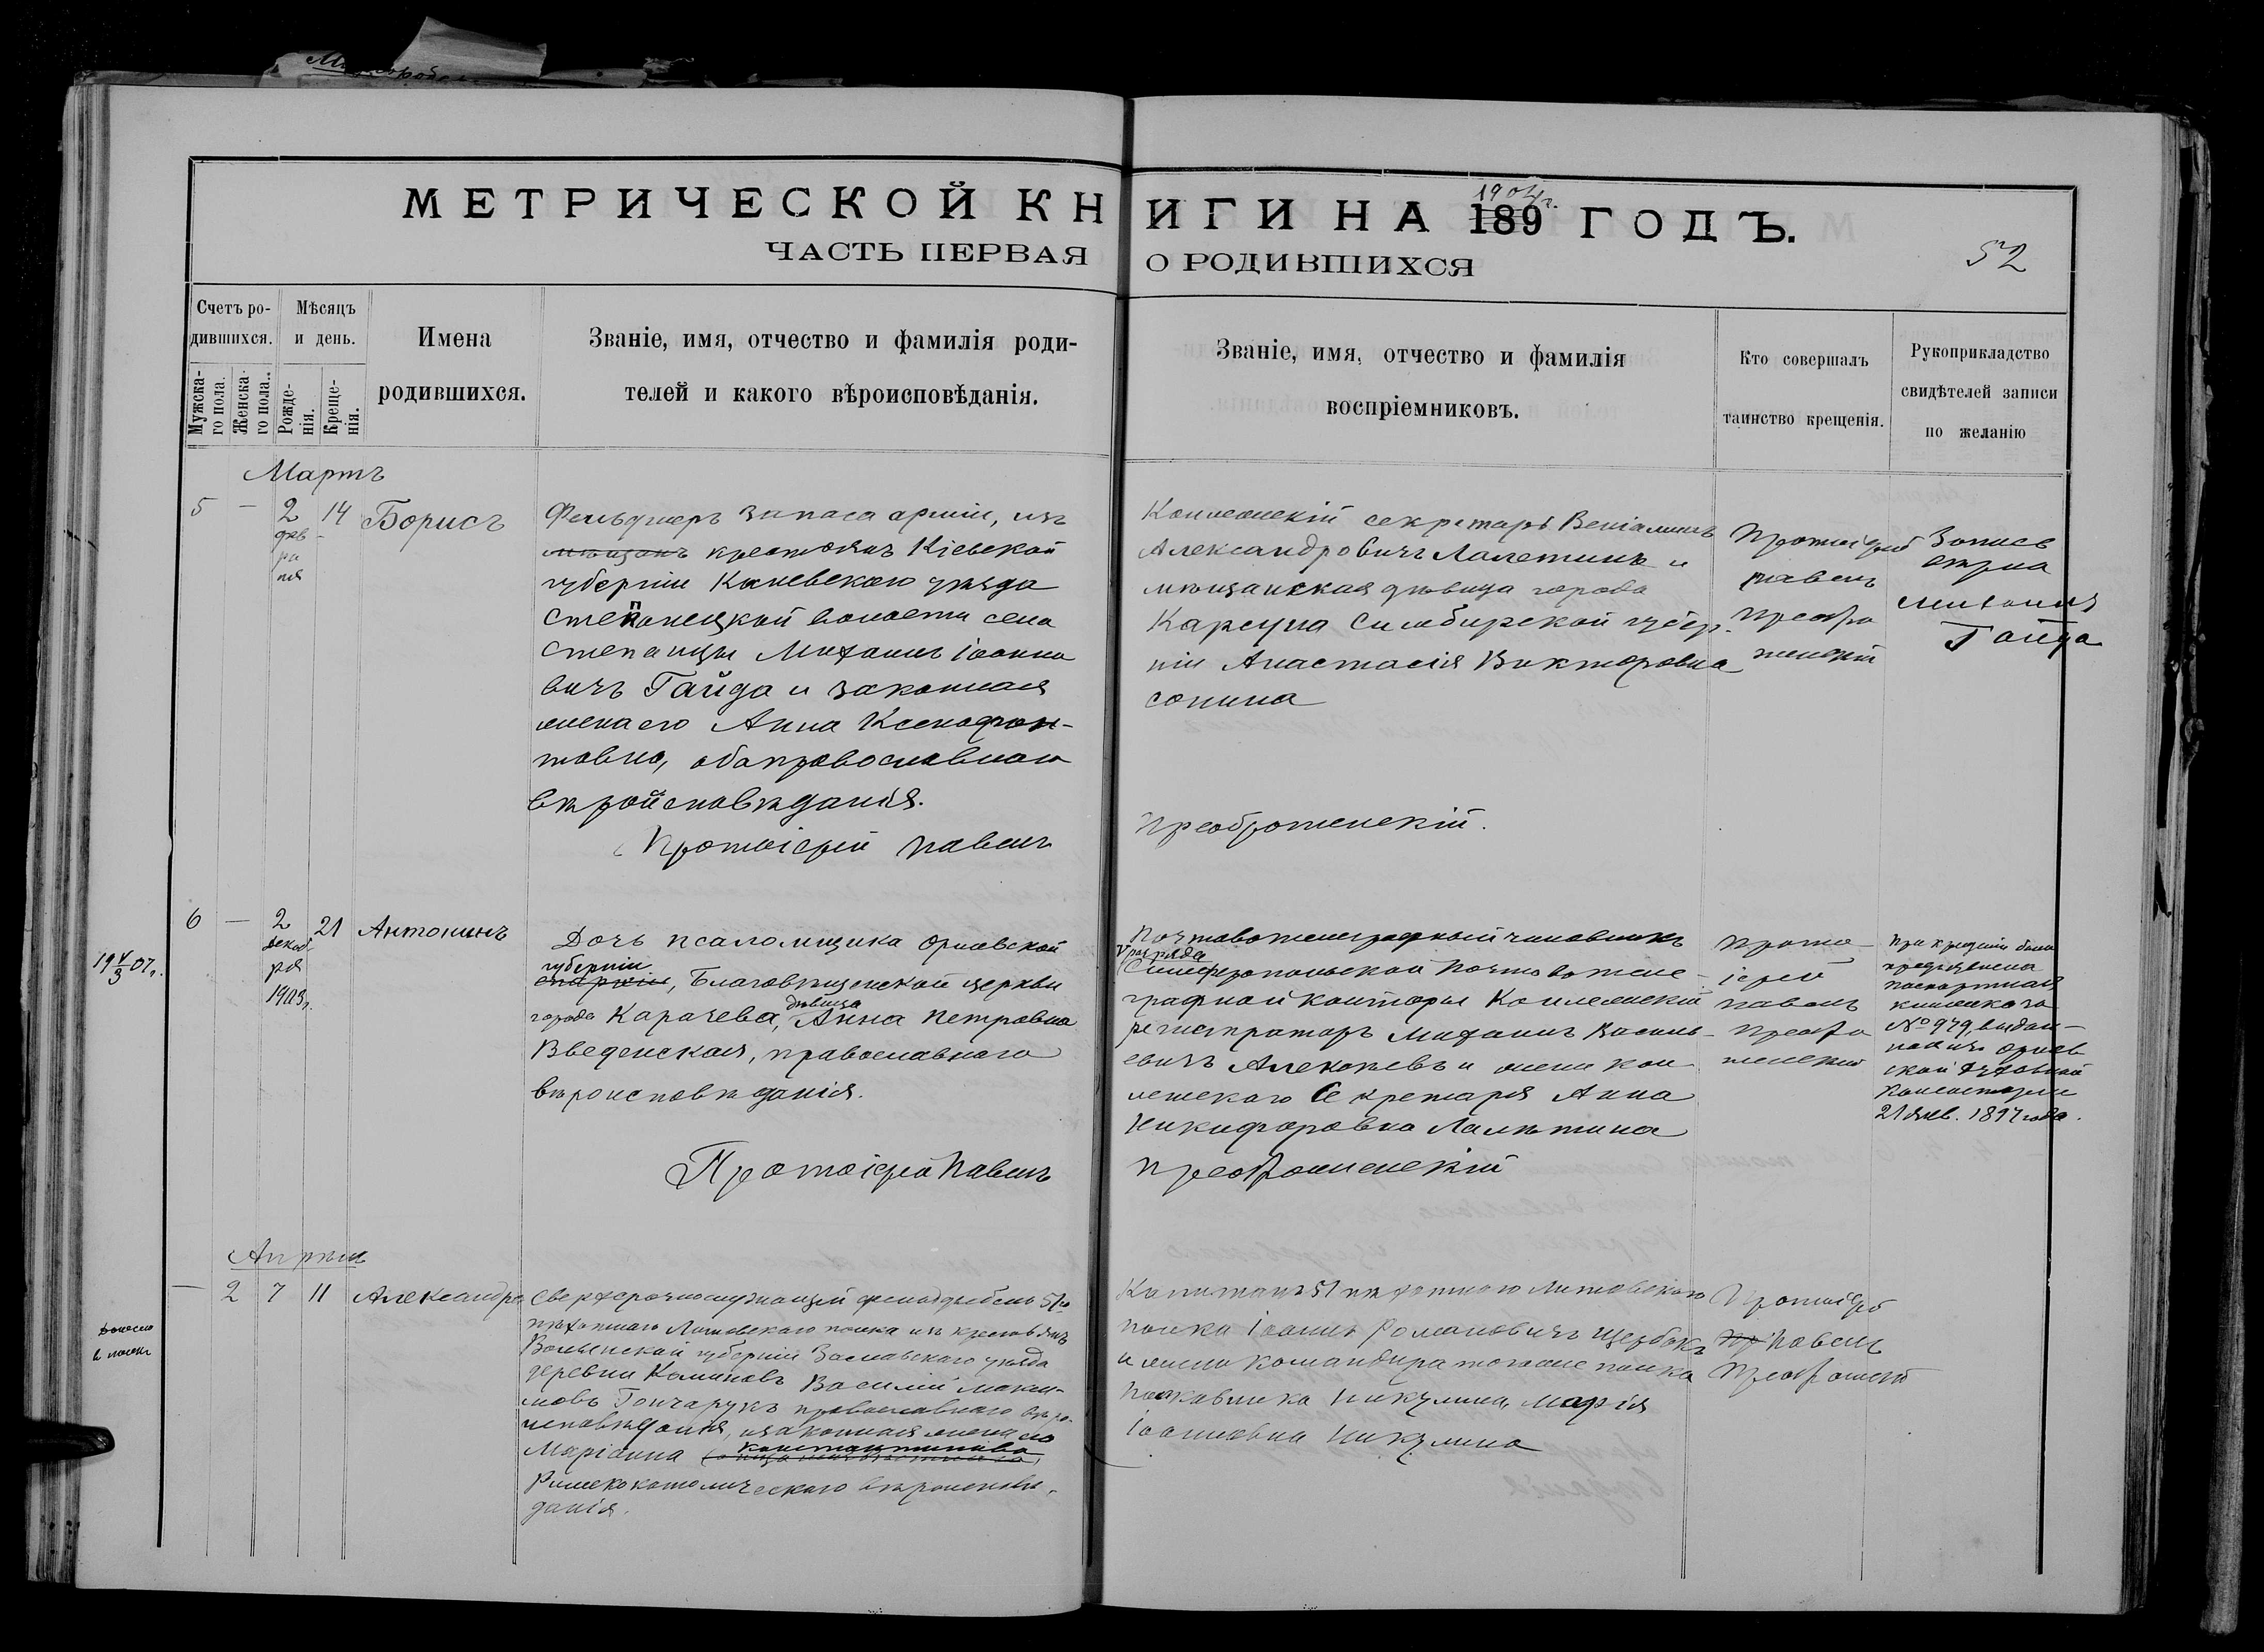 МЕТРИЧЕСКОЙ КНИГИ НА 189 ГОДЪ.
1904 г.
ЧАСТЬ ПЕРВАЯ О РОДИВШИХСЯ
52
Счетъ ро-
дившихся.
Мужска-
го пола.
Женска-
го пола..
Мѣсяцъ
и день.
Рожде-
нія.
Креще-
нія.
Имена
родившихся.
Званіе, имя, отчество и фамилія роди-
телей и какого вѣроисповѣданія.
Званіе, имя, отчество и фамилія
воспріемниковъ.
Кто совершалъ
таинство крещенія.
Рукоприкладство
свидѣтелей записи
по желанію
Мартъ
5 — 2 14 Борисъ
фев
ра
ля
Фельдшеръ запаса арміи, изъ
мѣщанъ крестьянъ Кіевской
губерніи Каневскаго уѣзда
Степанецкой волости села
Степанцы Михаилъ Іоанно
вичъ Гайда и законная
жена его Анна Ксенофон-
товна, оба православнаго
вѣройсповѣданія.
Протоіерей Павелъ
Коллежскій секретарь Веніаминъ
Александровичъ Лалетинъ и
мѣщанская дѣвица города
Карсуна Симбирской губер-
ніи Анастасія Викторовна
Сонина
Преображенскій.
Протоіерей
Павелъ
Преобра
женскій
Запись
верна
Михаилъ
Гайда
19 V/3 07 г.
6 — 2 21 Антонинъ
декаб
ря
1903 г.
Дочь псаломщика Орловской
губерніи
епархіи, Благовѣщенской церкви
дѣвица
города Карачева, Анна Петровна
Введенская, православнаго
вѣроисповѣданія.
Протоіерей Павелъ
Почтовотелеграфный чиновникъ
V разряда
Симферопольской Почтовотеле-
графной конторы Коллежскій
регистраторъ Михаилъ Василь-
евичъ Алексѣевъ и жена кол
лежскаго Секретаря Анна
Никифоровна Лалѣтина
Преображенскій
Прото-
іерей
Павелъ
Преобра
женскій
При крещеніи была
предъявлена
паспортная
книжка за
№ 979, выдан-
ная изъ Орлов
ской духовной
Консисторіи
21 янв. 1897 года.
Апрѣль
— 2 7 11 Александра
Сверхсрочнослужащій фельдфебель 51го
пѣхотнаго Литовскаго полка изъ крестьянъ
Волынской губерніи Заславскаго уѣзда
деревни Василій Макси-
мовъ Гончарукъ православнаго вѣро-
исповѣданія, и законная жена его
Маріанна Константинова
Римскокатолическаго вѣроисповѣ-
данія.
Капитанъ 51 пѣхотнаго Литовскаго
полка Іоаннъ Романовичъ Щербакъ
и жена командира того же полка
Полковника Никулина, Марія
Іоанновна Никулина
Протоіерей
Пр Павелъ
Преображенскій